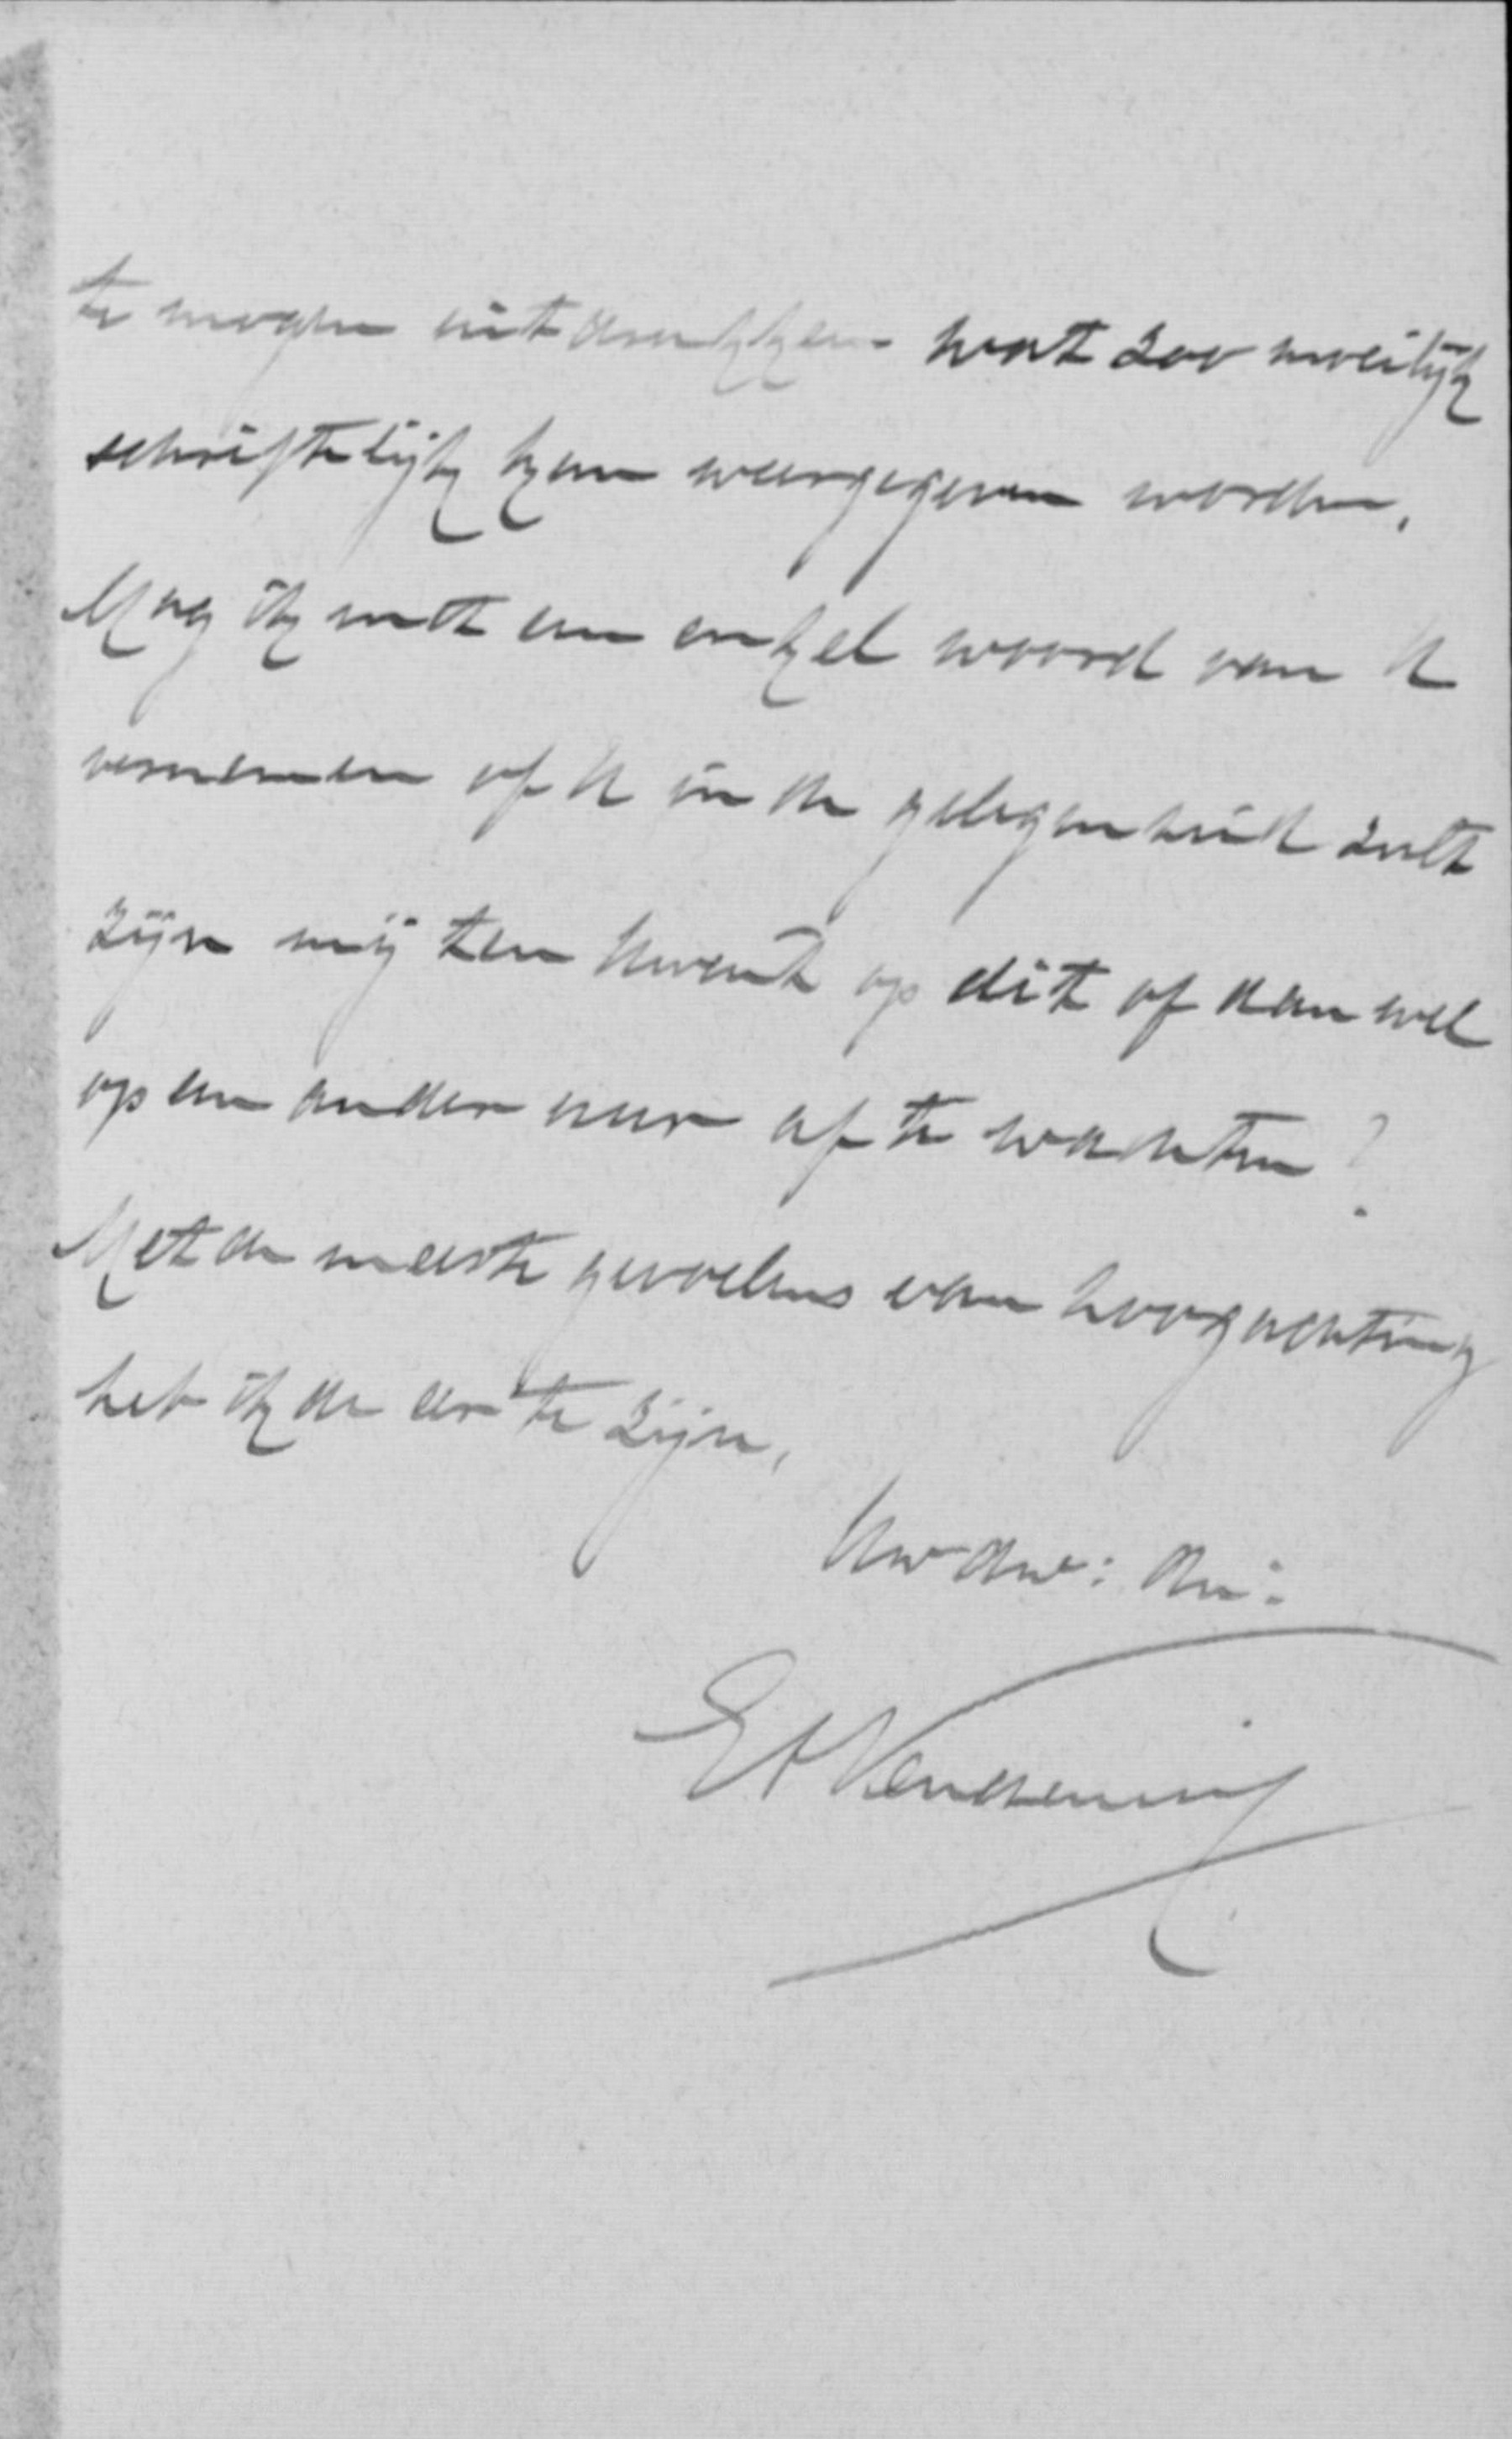 te mogen uitdrukken wat zoo moeilijk
schriftelijk kan weergegeven worden.
Mag ik met een enkel woord van U
vernemen of U in de gelegenheid zult
zijn mij ten Uwent op dit of dan wel
op een ander uur af te wachten?
Met de meeste gevoelens van hoogachting
heb ik de eer te zijn,
Uw dw: dn: